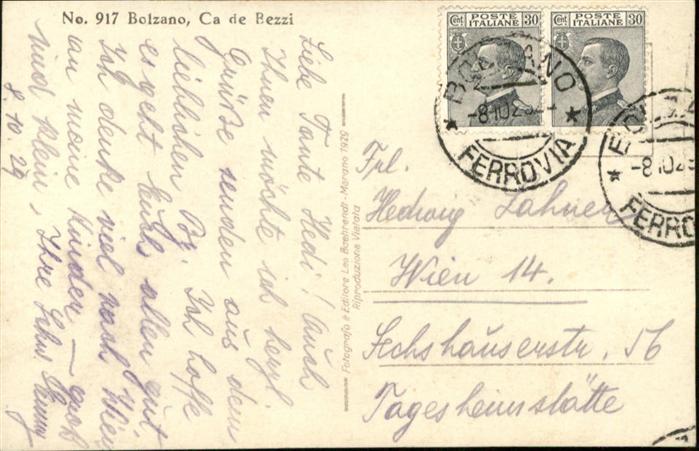 No. 917 Bolzano, Ca de Bezzi
Liebe Tante Hedi! Auch
Ihnen möchte ich herzl.
Grüße senden aus dem
lieblichen Bz. Ich hoffe
es geht Ihnen allen gut
Ich denke viel nach Wien
an meine Kinder — groß
und klein, Ihre
8.10 29
Fotografia e Editore Leo Baehrendt - Merano 1929
Riproduzione Vietata
Cent 30 POSTE ITALIANE
Cent 30 POSTE ITALIANE
BOLZANO
-8 10 29
FERROVIA
-8 10 29
FERRO
Frl.
Hedwig Lahner
Wien 14.
Sechshauserstr. 56
Tagesheimstätte